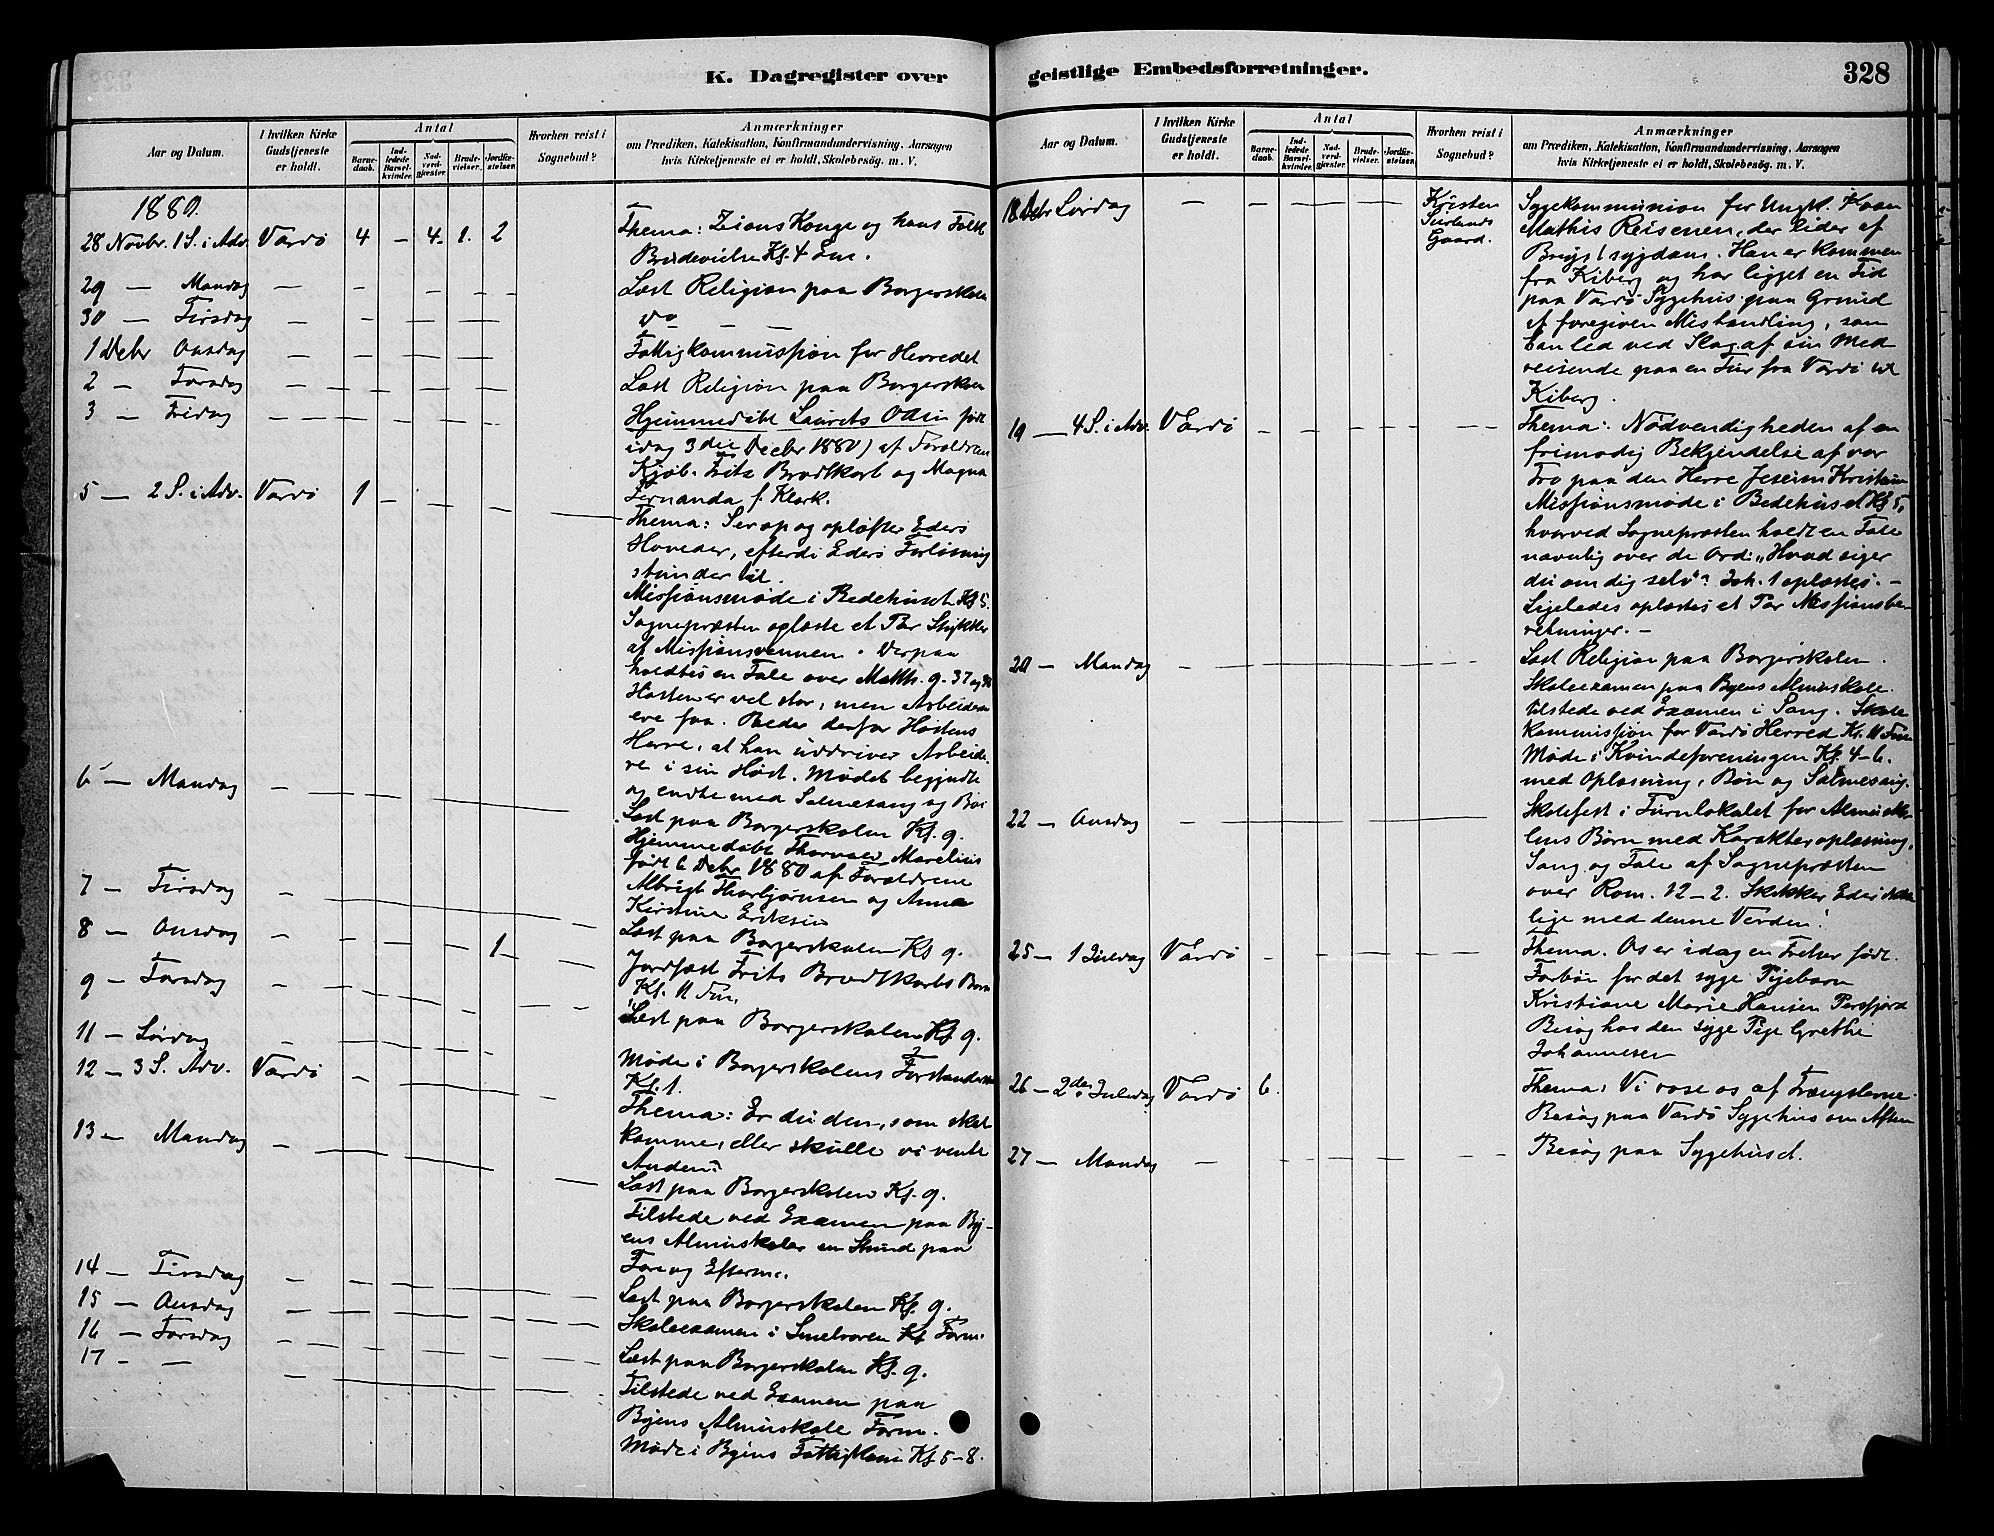 K. Dagregister over
Aar og Datum.
I hvilken Kirke Gudstjeneste er holdt.
Antal
Barne-daab.
Ind-ledede Barsel-kvinder.
Nad-verd-gjæster.
Brude-vielser.
Jordfæ-stelser.
Hvorhen reist i Sognebud?
Anmærkninger
om Prædiken, Katekisation, Konfirmandundervisning, Aarsagen
hvis Kirketjeneste ei er holdt, Skolebesög. m. V.
1880.
28 Novbr. 1 S. i Adv. Vardö 4 — 4. 1. 2
Thema: Zions Konge og hans Folk
Brudevielse Kl. 4 Em.
29 — Mandag — — — — —
Læst Religion paa Borgerskolen
30 — Tirsdag — — — — —
do — —
1 Debr Onsdag — — — — —
Fattigkommission for Herredet
2 — Torsdag — — — — —
Læst Religion paa Borgerskolen
3 — Fridag — — — — —
Hjemmedöbt Laurits Odin født
idag 3die Decbr 1880) af Forældrene
Kjøb. Frits Brodtkorb og Magna
Fernanda f. Klerk.
5 — 2 S. i Adv. Vardö 1 — — — —
Thema: Ser op og opløfter Eders
Hoveder, efterdi Eders Forløsning
stunder til.
Missionsmøde i Bedehuset Kl 5.
Sognepræsten oplæste et Par Stykker
af Missionsvennen. Derpaa
holdtes en Tale over Matth. 9. 37 og 38
Høsten er vel stor, men Arbeiderne
ere faa. Beder derfor Høstens
Herre, at han uddriver Arbeide-
re i sin Høst. Mødet begyndte
og endte med Salmesang og Bøn
6 — Mandag —
Læst paa Borgerskolen Kl. 9.
Hjemmedøbt Thorvald Marelius
født 6 Debr 1880 af Forældrene
Albrigt Thorbjørnsen og Anna
Kirstine Eriksen
7 — Tirsdag —
Læst paa Borgerskolen Kl 9.
8 — Onsdag — — — — 1 —
Jordfæst Frits Brodtkorbs Barn
Kl. 11 Fm.
9 — Torsdag
Læst paa Borgerskolen Kl 9.
11 — Lørdag
Møde i Borgerskolens Forstanderskab
Kl. 1.
12 — 3 S. Adv. Vardö —
Thema: Er du den, som skal
komme, eller skulle vi vente
Anden?
13 — Mandag —
Læst paa Borgerskolen Kl. 9.
Tilstede ved Examen paa By-
ens Almuskoler en Stund paa
For og Efterm.
14 — Tirsdag — — — — —
Læst paa Borgerskolen Kl. 9.
15 — Onsdag — — — — —
Skoleexamen i Smelroren Kl Form.
16 — Torsdag — — — — —
Læst paa Borgerskolen Kl. 9.
17 — — — — — —
Tilstede ved Examen paa
Byens Almuskole Form.
Møde i Byens Fattigkom Kl. 5–8.
geistlige Embedsforretninger.
328
Aar og Datum.
I hvilken Kirke Gudstjeneste er holdt.
Antal
Barne-daab.
Ind-ledede Barsel-kvinder.
Nad-verd-gjæster.
Brude-vielser.
Jordfæ-stelser.
Hvorhen reist i Sognebud?
Anmærkninger
om Prædiken, Katekisation, Konfirmandundervisning, Aarsagen
hvis Kirketjeneste ei er holdt, Skolebesög. m. V.
18 Debr Lørdag — — — — — —
Kristen
Gaard.
Sygekommunion for Ungk.
Mathis Reisenen, der lider af
Brystsygdom. Han er kommen
fra Kiberg og har ligget en Tid
paa Vardö Sygehus paa Grund
af foregiven Mishandling, som
han led ved Slag af sin Med
reisende paa en Tur fra Vardö til
Kiberg.
19 — 4 S. i Adv. Vardö — — — — — —
Thema: Nödvendigheden af en
frimodig Bekjendelse af vor
Tro paa den Herre Jesum Kristum
Missionsmøde i Bedehuset Kl 5,
hvorved Sognepræsten holdt en Tale
navnlig over de Ord: „Hvad siger
du om dig selv"? Joh. 1 oplæstes. —
Ligeledes oplæstes et Par Missionsbe-
retninger. —
20 — Mandag — — — — — —
Læst Religion paa Borgerskolen.
Skoleexamen paa Byens Almuskole.
tilstede ved Examen i Sang. Skole
kommission for Vardö Herred Kl. 11 Fm
Møde i Kvindeforeningen Kl. 4–6.
med Oplæsning, Bön og Salmesang.
22 — Onsdag — — — — — —
Skolefest i Turnlokalet for Almusko-
lens Børn med Karakteroplæsning,
Sang og Tale af Sognepræsten
over Rom. 12–2. Skikker Eder ikke
lige med denne Verden!
25 — 1 Juledag Vardö — — — — — —
Thema. Os er idag en Frelser født.
Forbön for det syge Pigebarn
Kristiane Marie Hansen Persfjord
Besøg hos den syge Pige Grethe
Johannesen
26 — 2den Juledag Vardö 6.
Thema: Vi rose os af Trængslerne.
Besøg paa Vardö Sygehus om Aften
27 — Mandag — — — — — —
Besøg paa Sygehuset.